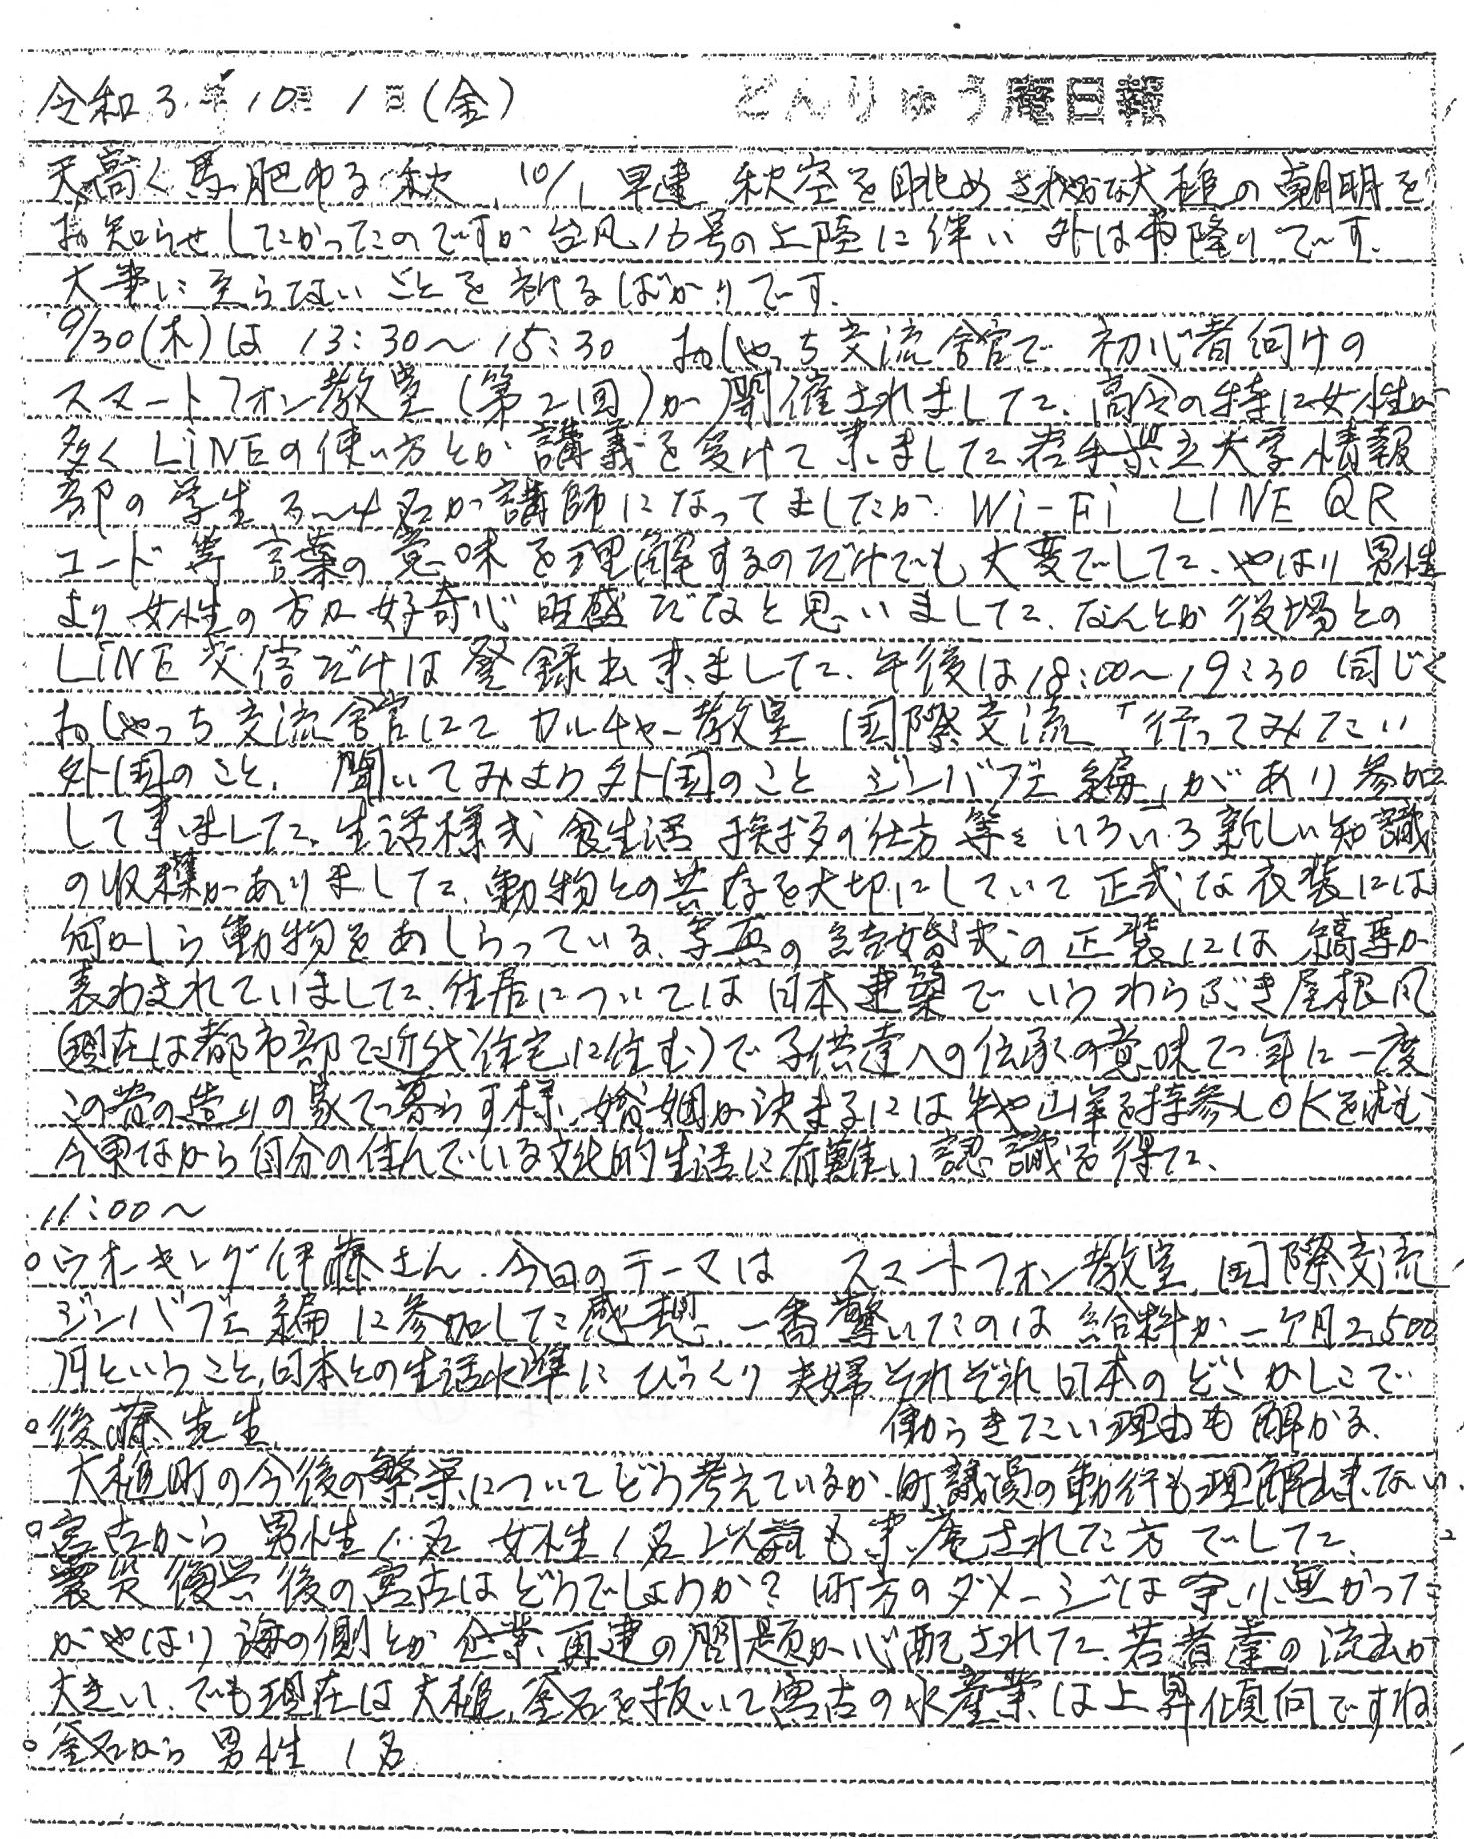 令和3年10月1日(金) どんりゅう庵日報
天高く馬肥ゆる秋 10/1 早速 秋空を眺め さわやかな大槌の朝明を
お知らせしたかったのですが 台風16号の上陸に伴い 外は雨降りです。
大事に至らないことを祈るばかりです。
9/30(木)は 13:30〜15:30 おしゃっち交流舎官で 初心者向けの
スマートフォン教室(第2回)が開催されました。高令の特に女性が
多く LiNEの使い方とか 講義を受けて来ました。岩手県立大学情報
部の学生 3〜4名が講師になってましたが Wi-Fi LINE QR
コード等 言葉の意味を理解するのだけでも大変でした。やはり男性
より女性の方が好奇心旺盛だなと思いました。なんとか役場との
LiNE交信だけは登録出来ました。午後は18:00〜19:30 同じく
おしゃっち交流舎官にて カルチャー教室 国際交流「行ってみたい
外国のこと、聞いてみよう外国のこと ジンバブエ編」があり参加
して来ました。生活様式 食生活 挨拶の仕方等々 いろいろ新しい知識
の収穫がありました。動物との共存を大切にしていて 正式な衣装には
何かしら動物をあしらっている。写真の結婚式の正装には縞馬が
表わされていました。住居については日本建築でいうわらぶき屋根風
(現在は都市部で近代住宅に住む)で子供達への伝承の意味で年に一度
この昔の造りの家で暮らす様、婚姻が決まるには牛や山羊を持参しOKを求む
今更ながら自分の住んでいる文化的生活に有難い認識を得た。
11:00〜
○ウオーキング伊藤さん、今日のテーマは スマートフォン教室、国際交流
ジンバブエ編に参加した感想、一番驚いたのは給料が一ケ月2,500
円ということ、日本との生活水準にびっくり 夫婦それぞれ日本のどこかしこで
働らきたい理由も解かる。
○後藤先生
大槌町の今後の繁栄についてどう考えているか、町議員の動行も理解出来ない。
○宮古から 男性1名 女性1名 以前も来庵された方でした。
震災復興後の宮古はどうでしょうか? 町方のダメージは余り無かった
がやはり海の側とか企業再建の問題が心配された。若者達の流出が
大きい、でも現在は大槌、釜石を抜いて宮古の水産業は上昇傾向ですね
○釜石から男性 1名